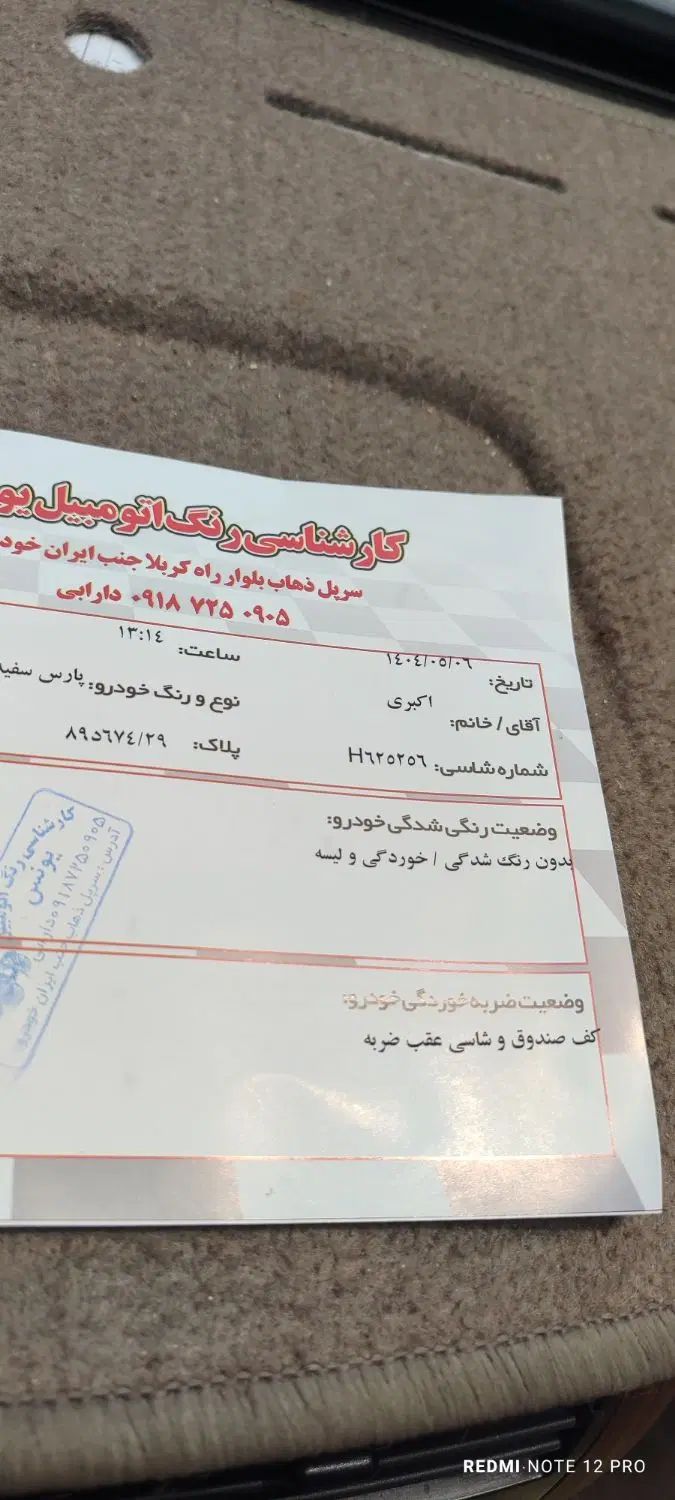 کارشناسی رنگ اتومبیل یو
سرپل ذهاب بلوار راه کربلا جنب ایران خود
۰۹۱۸ ۷۲۵ ۰۹۰۵ دارابی
تاریخ: ۱٤۰٤/۰٥/۰٦ ساعت: ۱۳:۱٤
آقای / خانم: اکبری نوع و رنگ خودرو: پارس سفید
شماره شاسی: H٦۲٥۲٥٦ پلاک: ۸۹د٦۷٤/۲۹
وضعیت رنگی شدگی خودرو:
بدون رنگ شدگی / خوردگی و لیسه
کارشناسی رنگ اتومبیل
یونس
۰۹۱۸۷۲۵۰۹۰۵ دارابی
آدرس: سرپل ذهاب جنب ایران خودرو
وضعیت ضربه خوردگی خودرو:
کف صندوق و شاسی عقب ضربه
REDMI NOTE 12 PRO